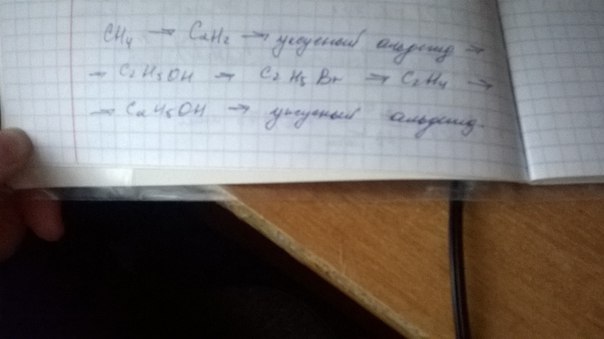 CH₄ → C₂H₂ → уксусный альдегид →
→ C₂H₅OH → C₂H₅Br → C₂H₄ →
→ C₂H₅OH → уксусный альдегид.